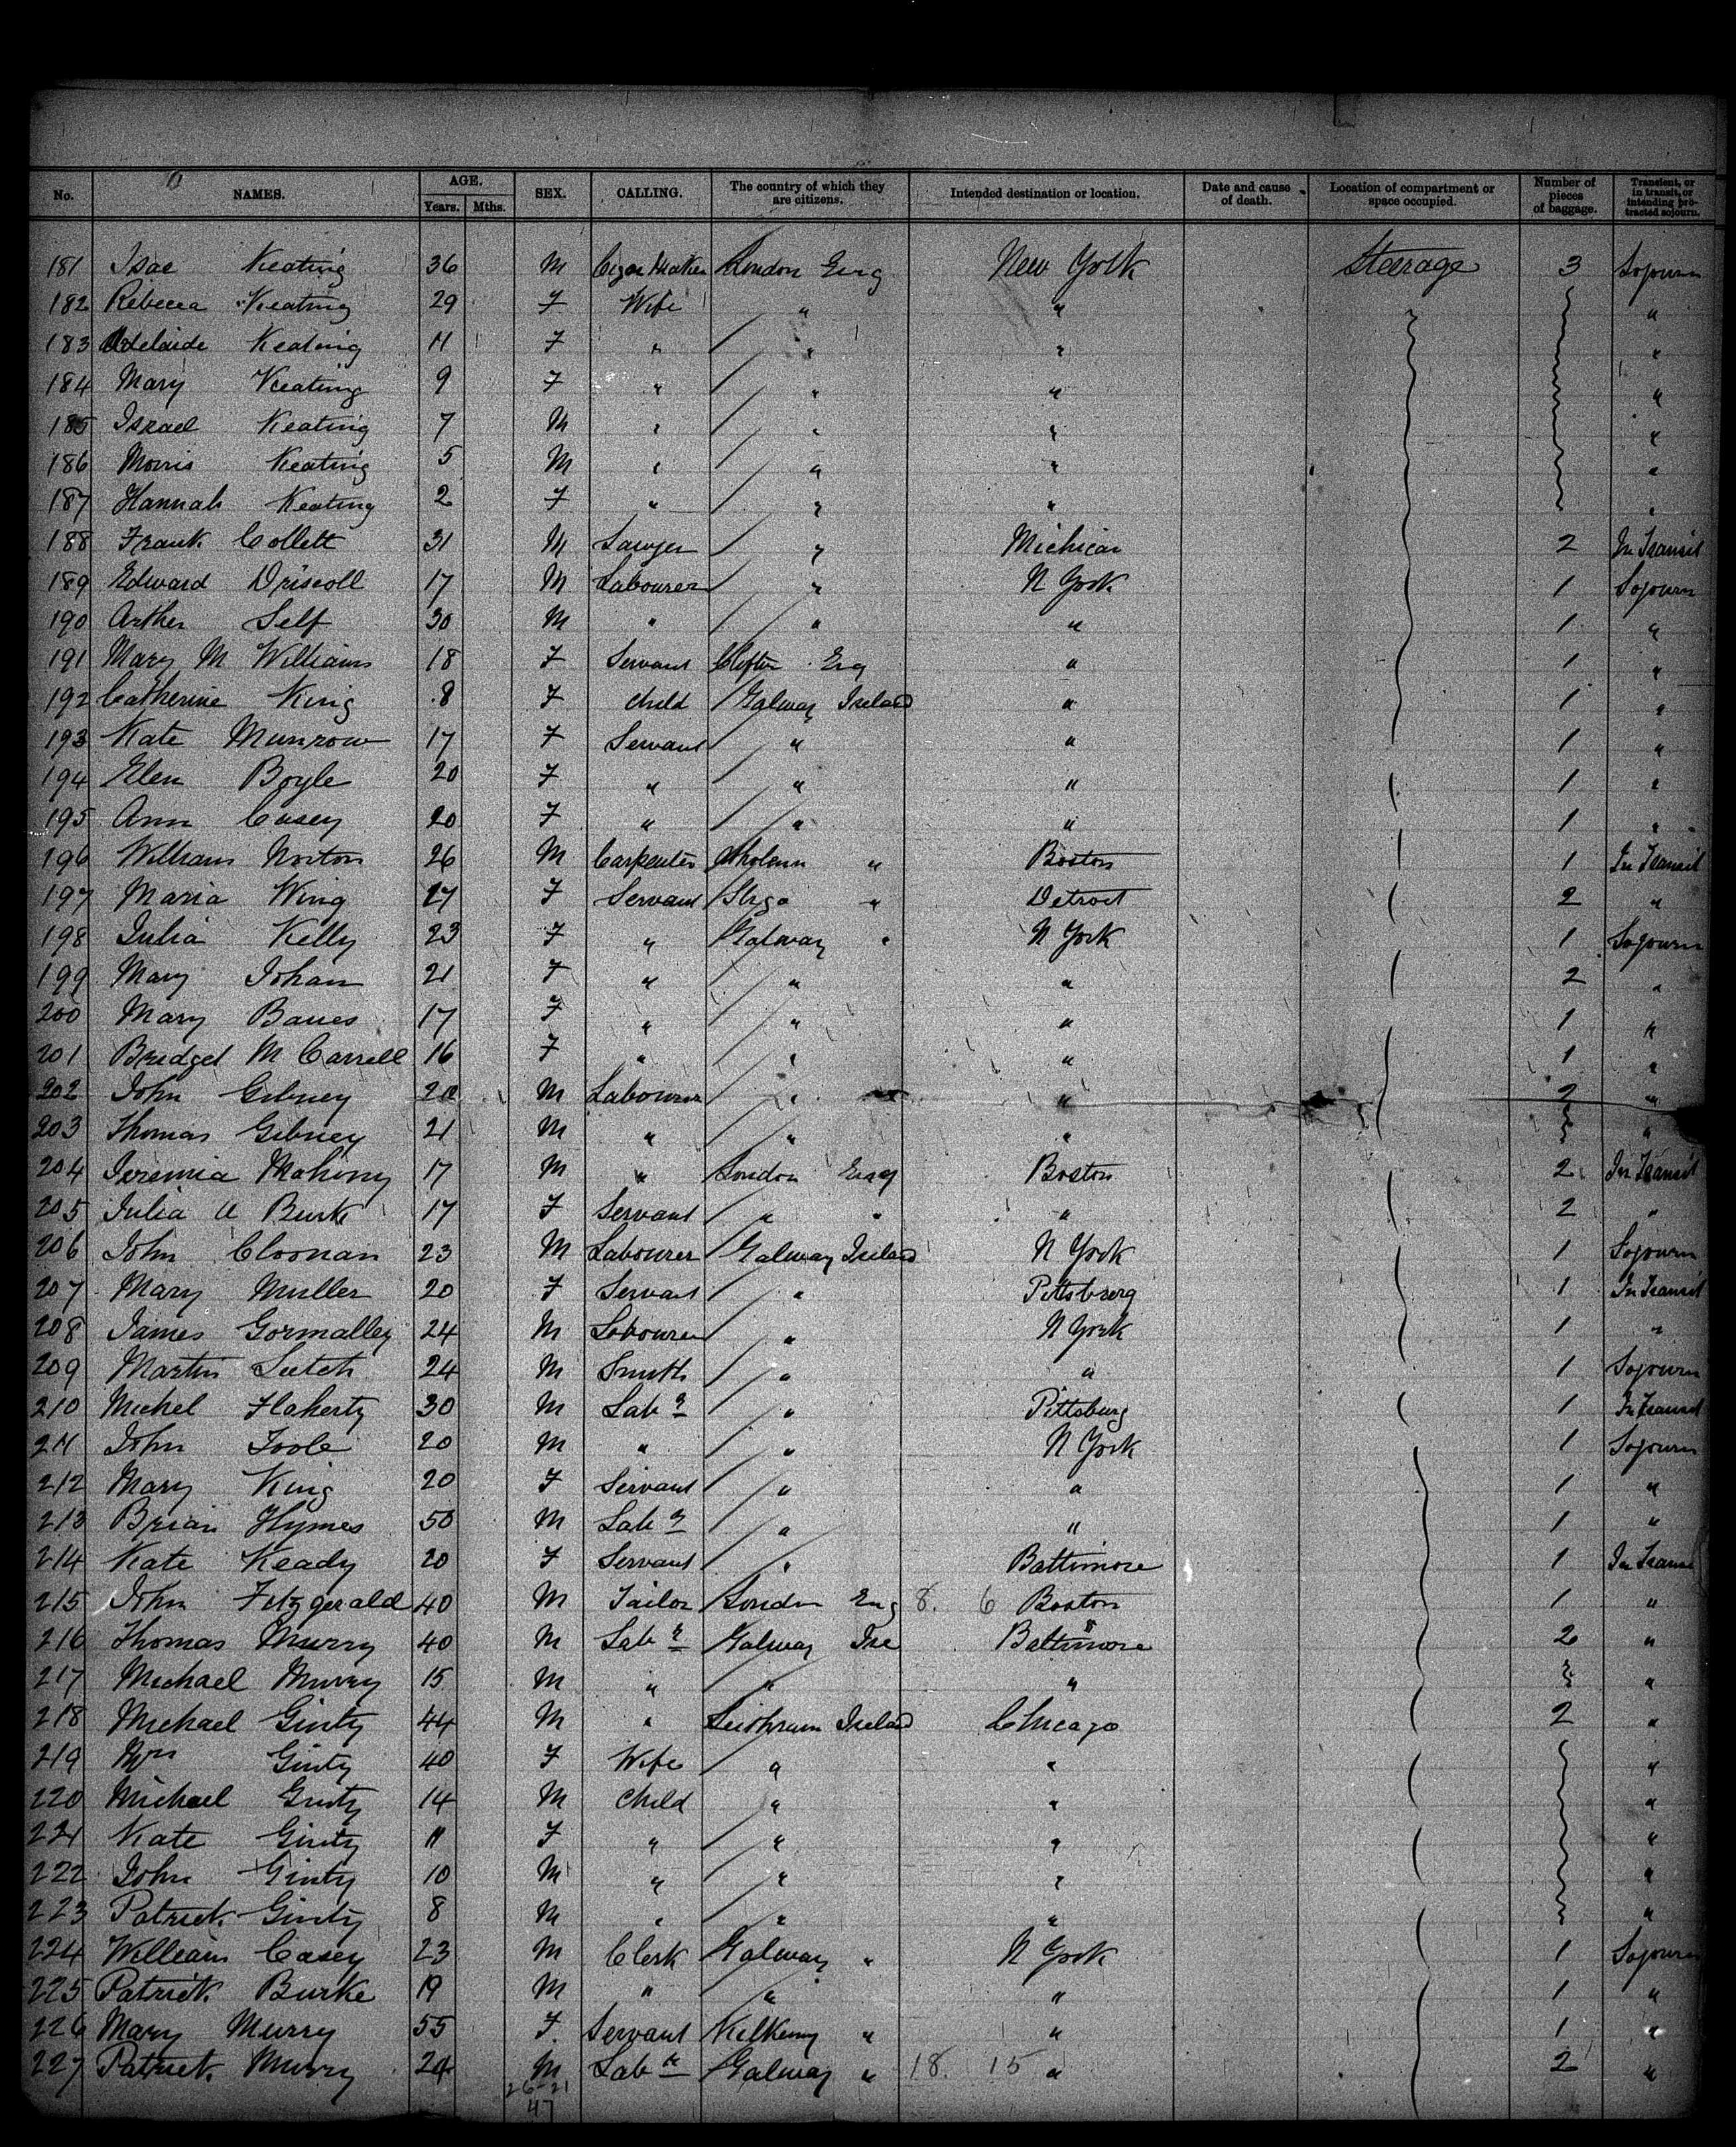 No. NAMES. AGE. Years. Mths. SEX. CALLING. The country of which they are citizens. Intended destination or location. Date and cause of death. Location of compartment or space occupied. Number of pieces of baggage. Transient, or in transit, or intending protracted sojourn.
181 Isac Keating 36 M Cigar Maker London Eng New York Steerage 3 Sojourn
182 Rebecca Keating 29 F Wife " " "
183 Adelaide Keating 11 F " " " "
184 Mary Keating 9 F " " " "
185 Israel Keating 7 M " " " "
186 Morris Keating 5 M " " " "
187 Hannah Keating 2 F " " " "
188 Frank Collett 31 M Sawyer " Michican 2 In Transit
189 Edward Driscoll 17 M Labourer " N York 1 Sojourn
190 Arther Self 30 M " " " 1 "
191 Mary M Williams 18 F Servant Clifton Eng " 1 "
192 Catherine King 8 F Child Galway Ireland " 1 "
193 Kate Munrow 17 F Servant " " 1 "
194 Elen Boyle 20 F " " " 1 "
195 Ann Casey 20 F " " " 1 "
196 William Norton 26 M Carpenter " Boston 1 In Transit
197 Maria Wing 27 F Servant Sligo " Detroit 2 "
198 Julia Kelly 23 F " Galway " N York 1 Sojourn
199 Mary Johan 21 F " " " 2 "
200 Mary Banes 17 F " " " 1 "
201 Bridget M Carrell 16 F " " " 1 "
202 John Gibney 20 M Labourer " " 2 "
203 Thomas Gibney 21 M " " " "
204 Jeremia Mahony 17 M " London Eng Boston 2 In Transit
205 Julia A Burke 17 F Servant " " " 2 "
206 John Cloonan 23 M Labourer Galway Ireland N York 1 Sojourn
207 Mary Muller 20 F Servant " Pittsburg 1 In Transit
208 James Gormalley 24 M Labourer " N York 1 "
209 Martin Leetch 24 M Smith " " 1 Sojourn
210 Michel Flaherty 30 M Labr " Pittsburg 1 In Transit
211 John Toole 20 M " " N York 1 Sojourn
212 Mary King 20 F Servant " " 1 "
213 Brian Hymes 50 M Labr " " 1 "
214 Kate Keady 20 F Servant " Baltimore 1 In Transi
215 John Fitzgerald 40 M Tailor London Eng 8. 6 Boston 1 "
216 Thomas Murry 40 M Labr Galway Ire Baltimore 2 "
217 Michael Murry 15 M " " " "
218 Michael Ginty 44 M " Leithrum Ireland Chicago 2 "
219 Mrs Ginty 40 F Wife " " "
220 Michael Ginty 14 M Child " " "
221 Kate Ginty 11 F " " " "
222 John Ginty 10 M " " " "
223 Patrick Ginty 8 M " " " "
224 William Casey 23 M Clerk Galway " N York 1 Sojourn
225 Patrick Burke 19 M " " " 1 "
226 Mary Murry 55 F. Servant Kilkenny " " 1 "
227 Patrick Murry 24 M Labr Galway " 18. 15 " 2 "
26-21
47